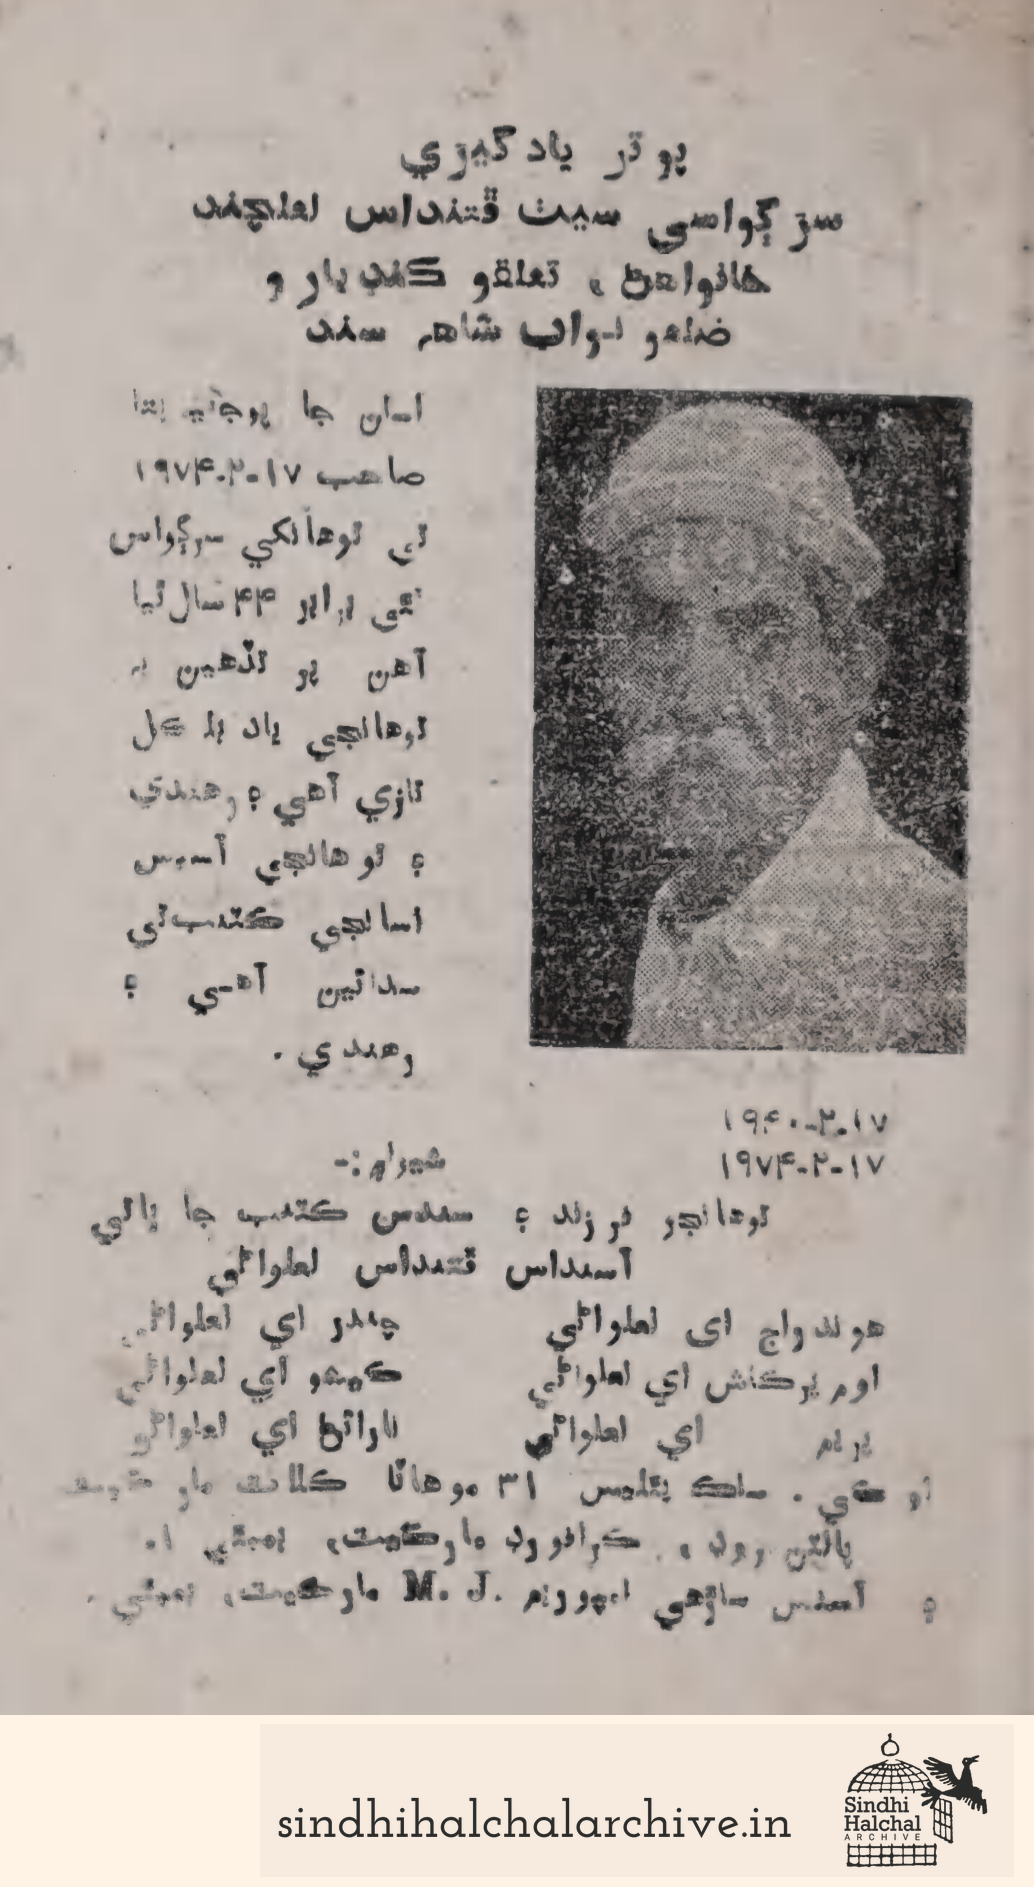 پوتر يادگيري
سرڳواسي سيٺ ڦتنداس لعلچند
هانواهڻ ، تعلقو ڪنڊيارو
ضلعو نواب شاهه سنڌ
اسان جا پوڄنيه پتا
صاحب ١٧-٢-١٩٧۴
تي توهانکي سرڳواس
ٿئي برابر ٣۴ سال ٿيا
آهن پر تڏهين به
توهانجي ياد بلڪل
تازي آهي ۽ رهندي
۽ توهانجي آسيس
اسانجي ڪٽنب تي
سدائين آهي ۽
رهندي .
١٧-٢-١٩۴٠
١٧-٢-١٩٧۴
توهانجو فرزند ۽ سندس ڪٽنب جا ڀاتي
آسنداس ڦتنداس لعلواڻي
هوندراج اي لعلواڻي
چندر اي لعلواڻي
اوم پرڪاش اي لعلواڻي
ڪيشو اي لعلواڻي
پريم اي لعلواڻي
نارائڻ اي لعلواڻي
٣١ موهاٽا ڪلاٿ مارڪيٽ
پالٽن روڊ ، ڪرافورڊ مارڪيٽ، بمبئي ١.
۽ آسنس ساڙهي M. J. مارڪيٽ، بمبئي .
sindhihalchalarchive.in
Sindhi
Halchal
ARCHIVE